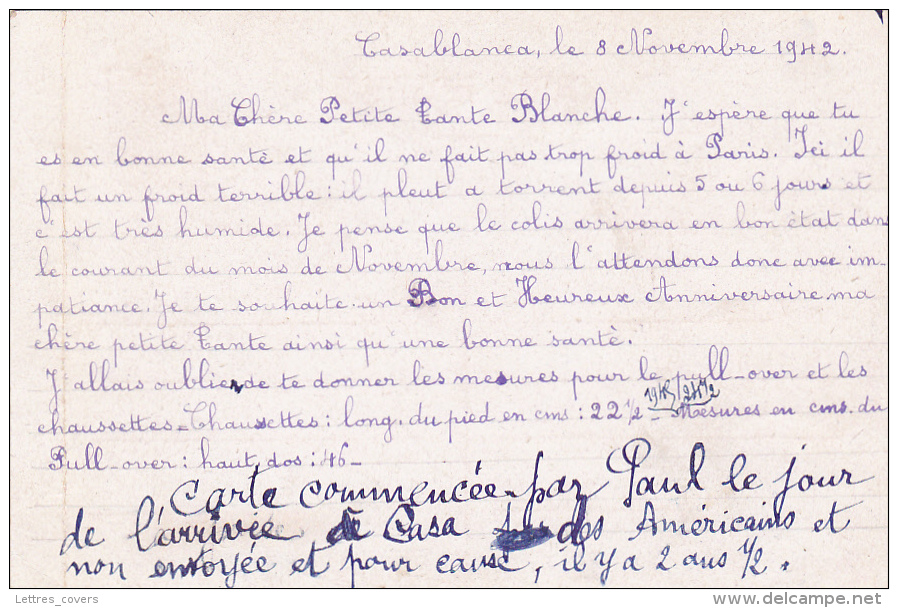 Casablanca, le 8 Novembre 1942.
Ma Chère Petite Tante Blanche. J'espère que tu
es en bonne santé et qu'il ne fait pas trop froid à Paris. Ici il
fait un froid terrible : il pleut a torrent depuis 5 ou 6 jours et
c'est très humide. Je pense que le colis arrivera en bon état dans
le courant du mois de Novembre, nous l'attendons donc avec im-
patiance. Je te souhaite un Bon et Heureux Anniversaire ma
chère petite Tante ainsi qu'une bonne santé.
J'allais oublier de te donner les mesures pour le pull-over et les
1945 / 24 1/2
chaussettes - Chaussettes : long. du pied en cms : 22 1/2 - Mesures en cms. du
Pull-over : haut, dos : 46 -
Carte commencée par Paul le jour
de l'arrivée à Casa des Américains et
non envoyée et pour cause, il y a 2 ans 1/2.
Lettres_covers
delcampe.net